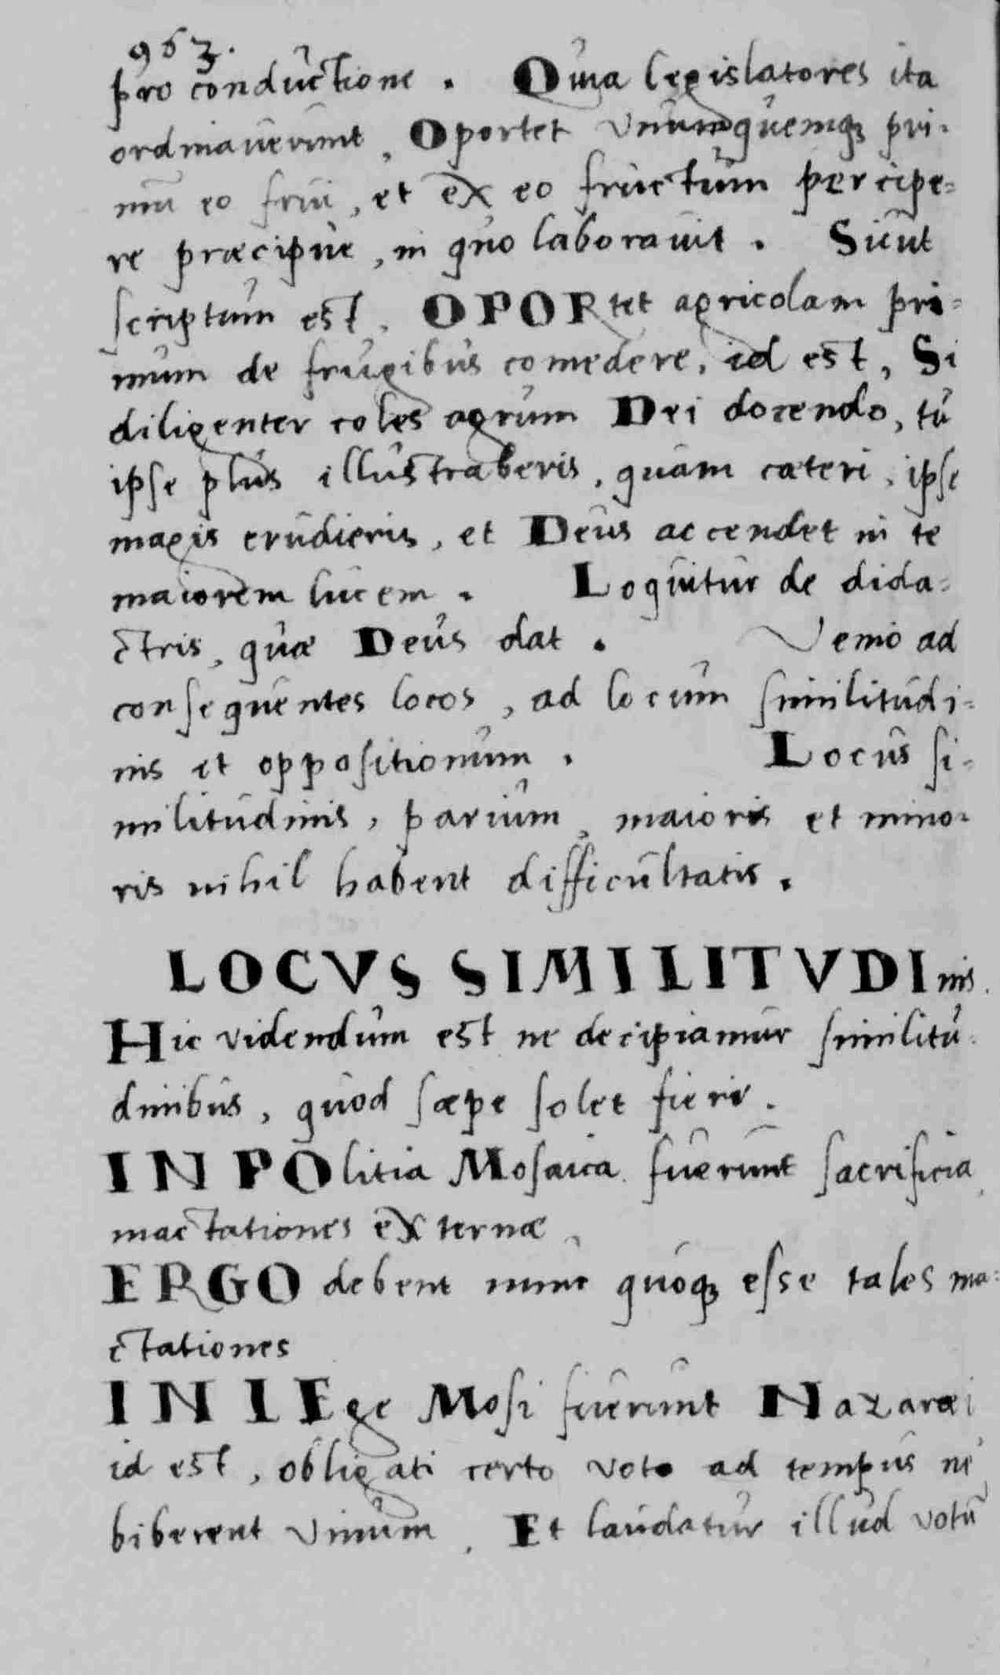 963.
pro conductione. Quia legislatores ita
ordinaverunt, Oportet unumquemq; pri-
mũ eo frui, et ex eo fructum percipe=
re præcipue, in quo laboravit. Sicut
scriptum est, OPORtet agricolam pri=
mum de frugibus comedere, id est, Si
diligenter coles agrum Dei docendo, tu
ipse plus illustraberis, quam cæteri, ipse
magis erudieris, et Deus accendet in te
maiorem lucem. Loquitur de dida=
ctris, quæ Deus dat. Venio ad
consequentes locos, ad locum similitudi=
nis et oppositionum. Locus si=
militudinis, parium, maioris et mino=
ris nihil habent difficultatis.
LOCVS SIMILITVDInis.
Hic videndum est ne decipiamur similitu=
dinibus, quod sæpe solet fieri.
IN POlitia Mosaica fuerunt sacrificia,
mactationes externæ,
ERGO debent nunc quoq; esse tales ma=
ctationes
IN LEge Mosi fuerunt Nazaræi
id est, obligati certo voto ad tempus ne
biberent vinum, Et laudatur illud votũ